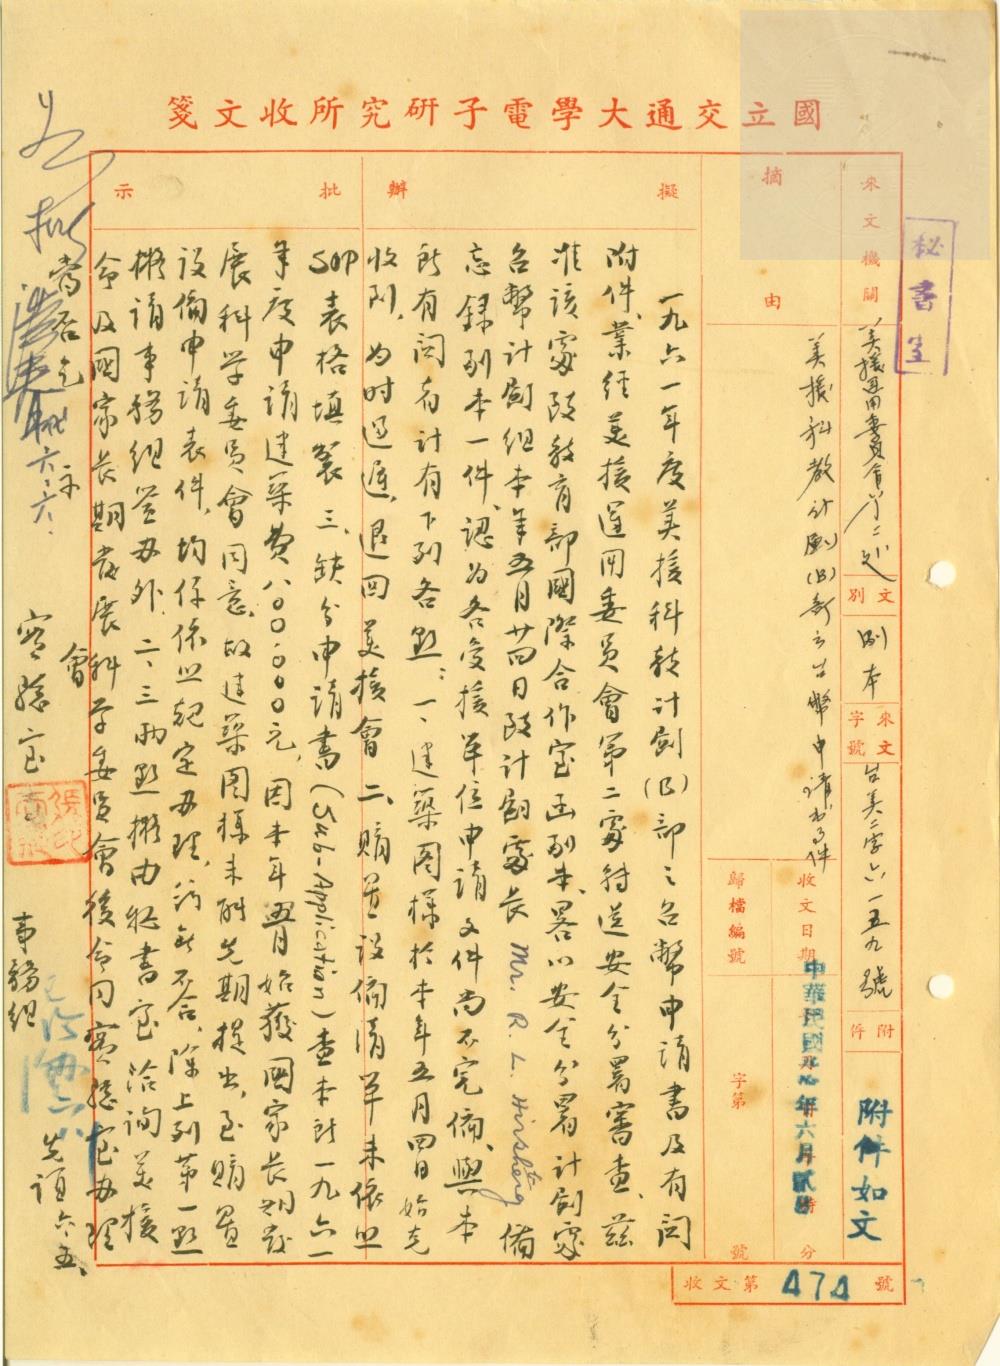 國立交通大學電子研究所收文箋
秘書室
來文機關
美援運用委員會第二處
文別
副本
來文字號
台美二字六一五九號
附件
附件如文
摘由
美援科教計劃(B)部之台幣申請書等件
收文日期
中華民國年六月貳
時
分
歸檔編號
字第
號
擬辦
批示
一九六一年度美援科教計劃(B)部之台幣申請書及有関
附件、業經美援運用委員會第二處轉送安全分署審查、茲
准該處致教育部國際合作室函副本、畧以安全分署計劃處
台幣計劃組本年五月廿四日致計劃處長 Mr. R. L. Hirshberg 備
忘錄副本一件、認為各受援單位申請文件尚不完備、與本
所有関者計有下列各點：一、建築圖樣於本年五月四日始克
收到、為時過遲、退回美援會 二、購置設備清單未依照
SOP 表格填製 三、缺分申請書(Sub-Application)查本所一九六一
年度申請建築費八〇〇、〇〇〇元、因本年四月始獲國家長期發
展科學委員會同意、故建築圖樣未能先期提出、至購置
設備申請表件、均係依照規定辦理、尚無不合、除上列第一點
擬請事務組簽辦外、二、三兩點擬由秘書室洽詢美援
會及國家長期發展科學委員會後會同實驗室辦理
當否乞
示
如擬
六、六、
會
實驗室
事務組
先誼 六、五、
收文第 474 號